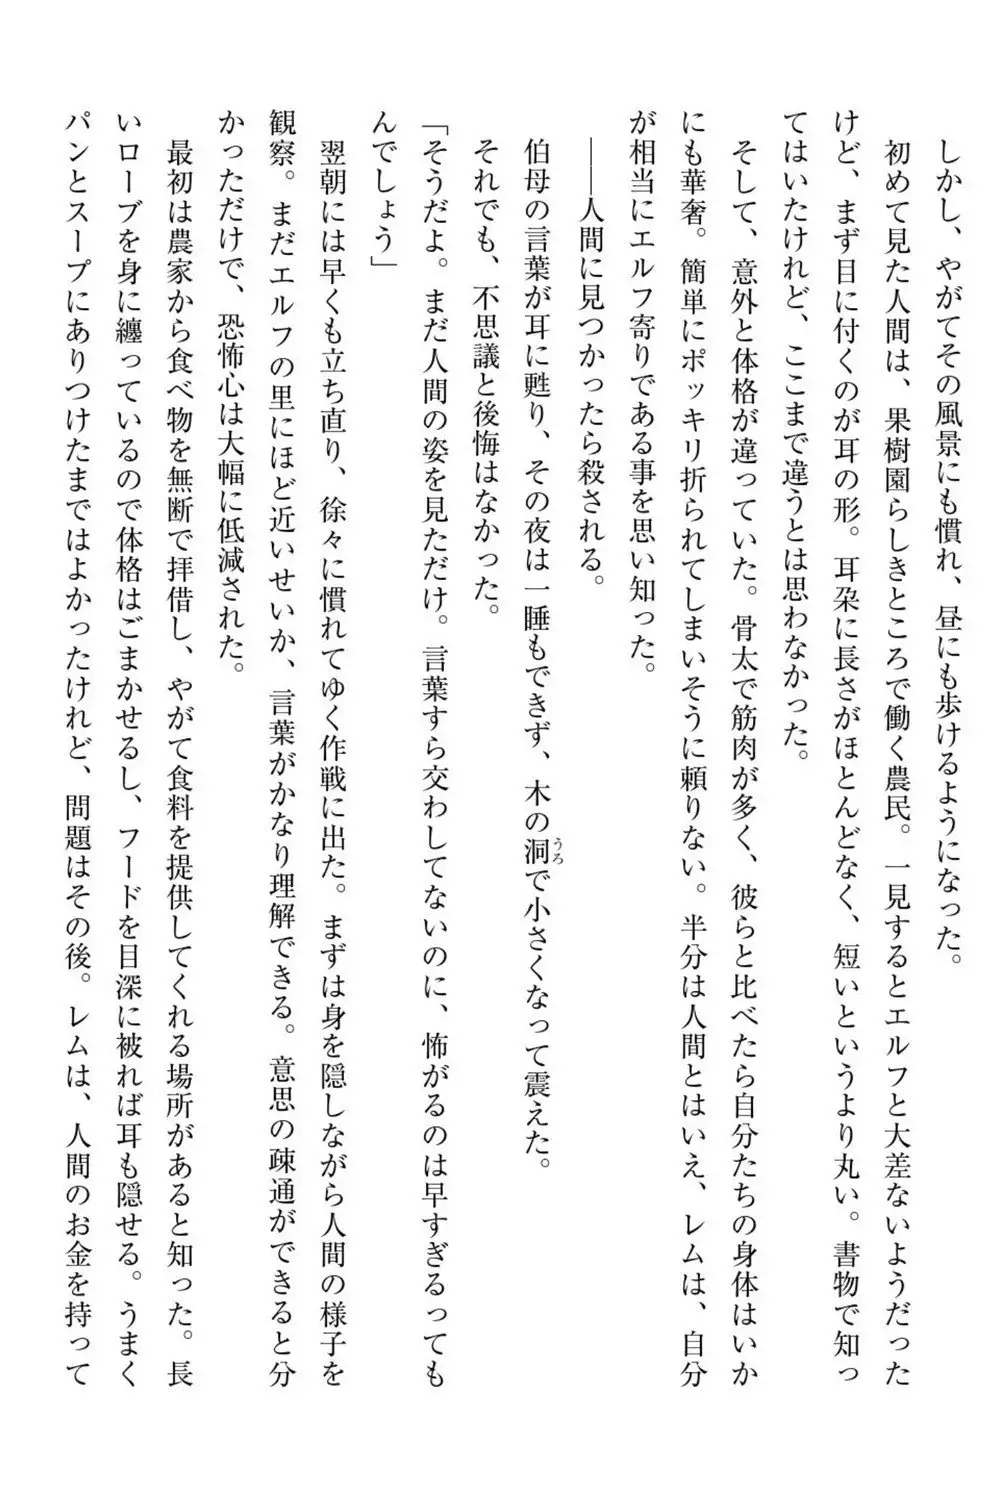 しかし、やがてその風景にも慣れ、昼にも歩けるようになった。
初めて見た人間は、果樹園らしきところで働く農民。一見するとエルフと大差ないようだった
けど、まず目に付くのが耳の形。耳朶に長さがほとんどなく、短いというより丸い。書物で知っ
てはいたけれど、ここまで違うとは思わなかった。
そして、意外と体格が違っていた。骨太で筋肉が多く、彼らと比べたら自分たちの身体はいか
にも華奢。簡単にポッキリ折られてしまいそうに頼りない。半分は人間とはいえ、レムは、自分
が相当にエルフ寄りである事を思い知った。
――人間に見つかったら殺される。
伯母の言葉が耳に甦り、その夜は一睡もできず、木の洞うろで小さくなって震えた。
それでも、不思議と後悔はなかった。
「そうだよ。まだ人間の姿を見ただけ。言葉すら交わしてないのに、怖がるのは早すぎるっても
んでしょう」
翌朝には早くも立ち直り、徐々に慣れてゆく作戦に出た。まずは身を隠しながら人間の様子を
観察。まだエルフの里にほど近いせいか、言葉がかなり理解できる。意思の疎通ができると分
かっただけで、恐怖心は大幅に低減された。
最初は農家から食べ物を無断で拝借し、やがて食料を提供してくれる場所があると知った。長
いローブを身に纏っているので体格はごまかせるし、フードを目深に被れば耳も隠せる。うまく
パンとスープにありつけたまではよかったけれど、問題はその後。レムは、人間のお金を持って